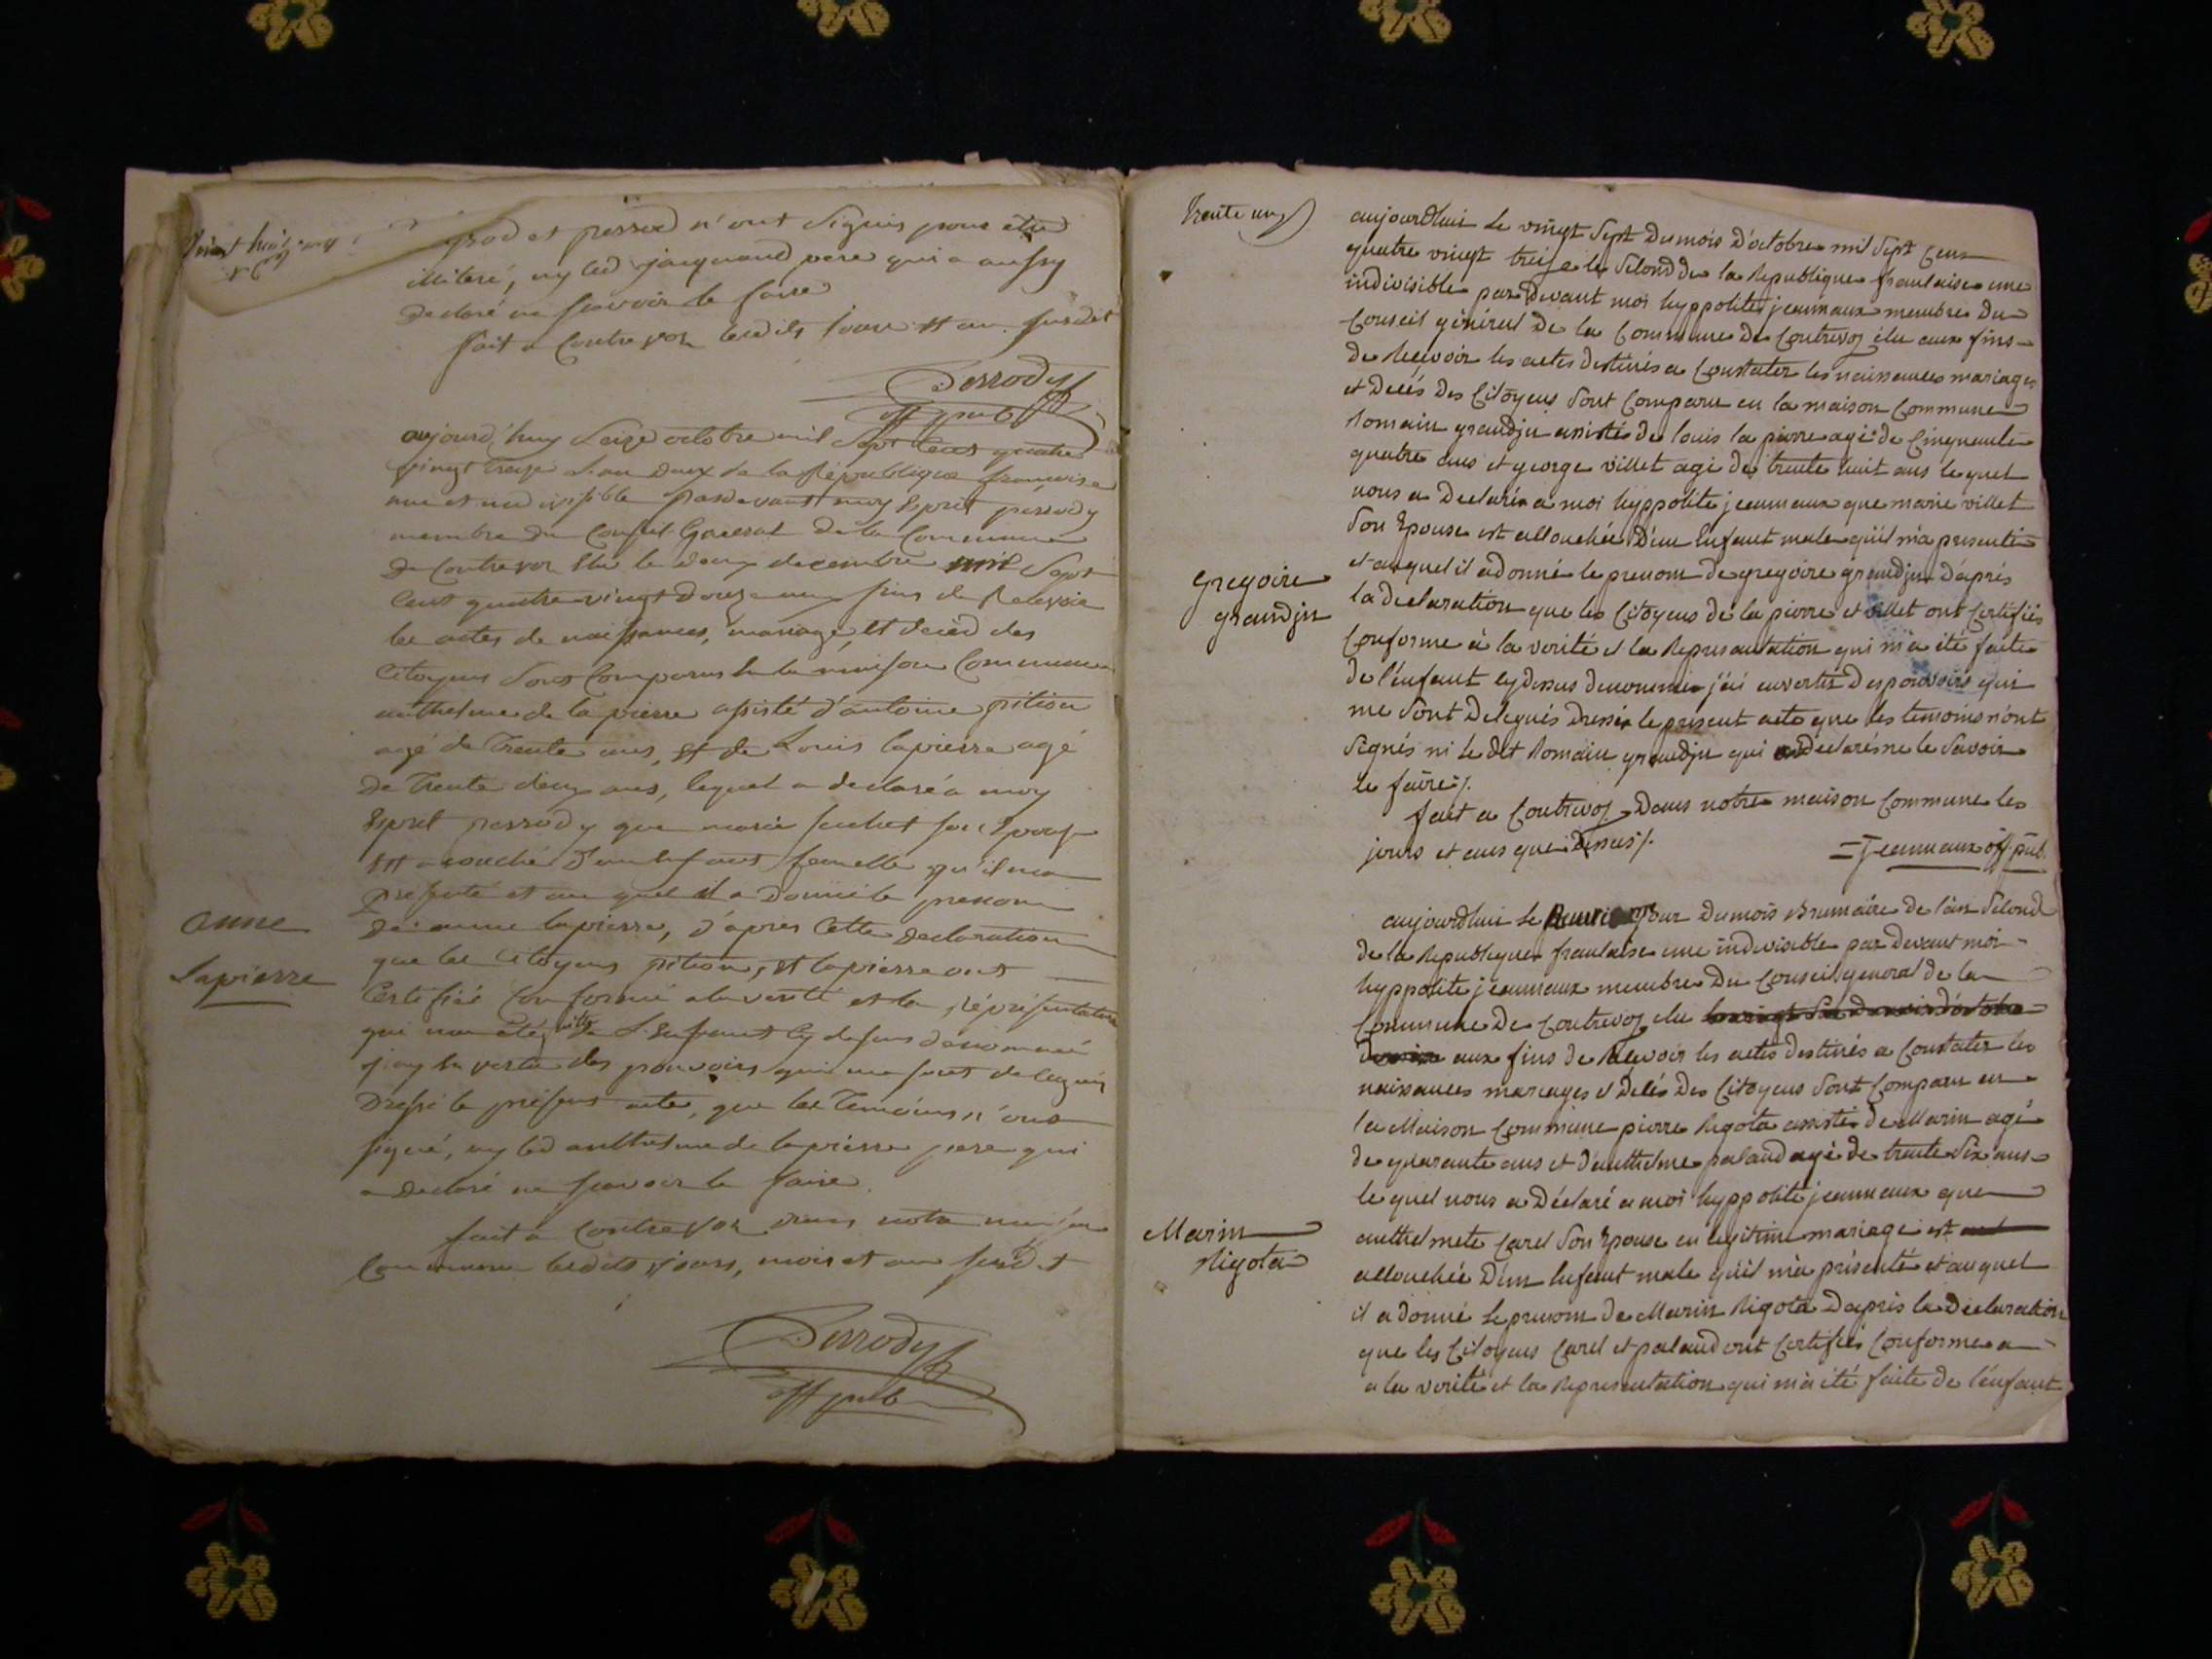 grod et perrod n'ont Signés pour être
illiteré, ny led jacquand pere qui a aussy
declaré ne scavoir le faire
fait a Contrevoz lesdits jour et an susdit
Perrody
off pub
aujourd'huy Seize octobre mil Sept Cent quatre
vingt treize l'an deux de la République françoise
une et indivisible pardevant moy Esprit perrody
membre du Conseil General de la Commune
de Contrevoz élu le deux decembre mil Sept
Cent quatre vingt douze aux fins de Recevoir
les actes de naissances, mariage, et decéd des
Citoyens Sont Comparus en la maison Commune
anthelme de la pierre assisté d'antoine pition
agé de Trente ans, et de Louis lapierre agé
de Trente deux ans, lequel a declaré a moy
Esprit perrody que marie suchet son Epouse
est acouché d'un enfant femelle qu'il m'a
presenté et au quel il a donné le prenom
anne
de anne lapierre, d'apres Cette declaration
Lapierre
que les Citoyens pition, et lapierre ont
Certifié Conforme a la verité et la réprésentation
qui m'a été faite de L'Enfant Cy dessus dénommé
j'ay En vertu des pouvoirs qui me sont delegués
Dressé le présent acte, que les Temoins n'ont
signé, ny led anthelme de lapierre pere qui
a declaré ne scavoir le faire.
fait a Contrevoz dans notre maison
Commune lesdits jours, mois et an susdit
Perrody
off pub
trente un
aujourdhui le vingt Sept du mois d'octobre mil Sept Cens
quatre vingt treise le Second de la Republique francaise une
indivisible par devant moi hyppolite jeanmaux membre du
Conseil général de la Commune de Contrevoz élu aux fins
de Recevoir les actes destinés a Constater les naissances mariages
et Decés des Citoyens Sont Comparu en la maison Commune
Romain grandjn assistés de louis la pierre agé de Cinquante
quatre ans et george villet agé de trente huit ans le quel
nous a Declaré a moi hyppolite jeanmaux que marie villet
Son Epouse est accouchée D'un Enfant male qu'il m'a presenté
et auquel il a donné le prenom de gregoire grandjn d'aprés
Gregoire
grandjn
la declaration que les Citoyens de la pierre et villet ont Certifiés
Conforme à la verité et la Representation qui m'a été faite
de l'enfant cy dessus denommé j'ai en vertu des pouvoirs qui
me Sont Delegués Dressé le present acte que les temoins n'ont
Signés ni le dit Romain grandjn qui a declaré ne le Savoir
le faire /.
fait a Contrevoz Dans notre maison Commune les
jours et ans que dessus /.
Jeanmaux off. pub.
aujourdhui le jour du mois Brumaire de l'an Second
de la Republique francaise une indivisible par devant moi
hyppolite jeanmaux membre Du Conseil general de la
Commune De Contrevoz élu
aux fins de Recevoir les actes destinés a Constater les
naissances mariages et Décés Des Citoyens Sont Comparu en
la Maison Commune pierre Rigota assisté de Marin agé
de quarante ans et d'anthelme palaud agé de trente Six ans
le quel nous a Déclaré a moi hyppolite jeanmaux que
Marin
Rigota
anthelmete Carel Son Epouse en legitime mariage est
accouchée D'un Enfant male qu'il m'a présenté et auquel
il a donné le prenom De Marin Rigota D'aprés la Declaration
que les Citoyens Carel et palaud ont Certifiés Conforme a
a la verité et la Representation qui m'a été faite de l'enfant